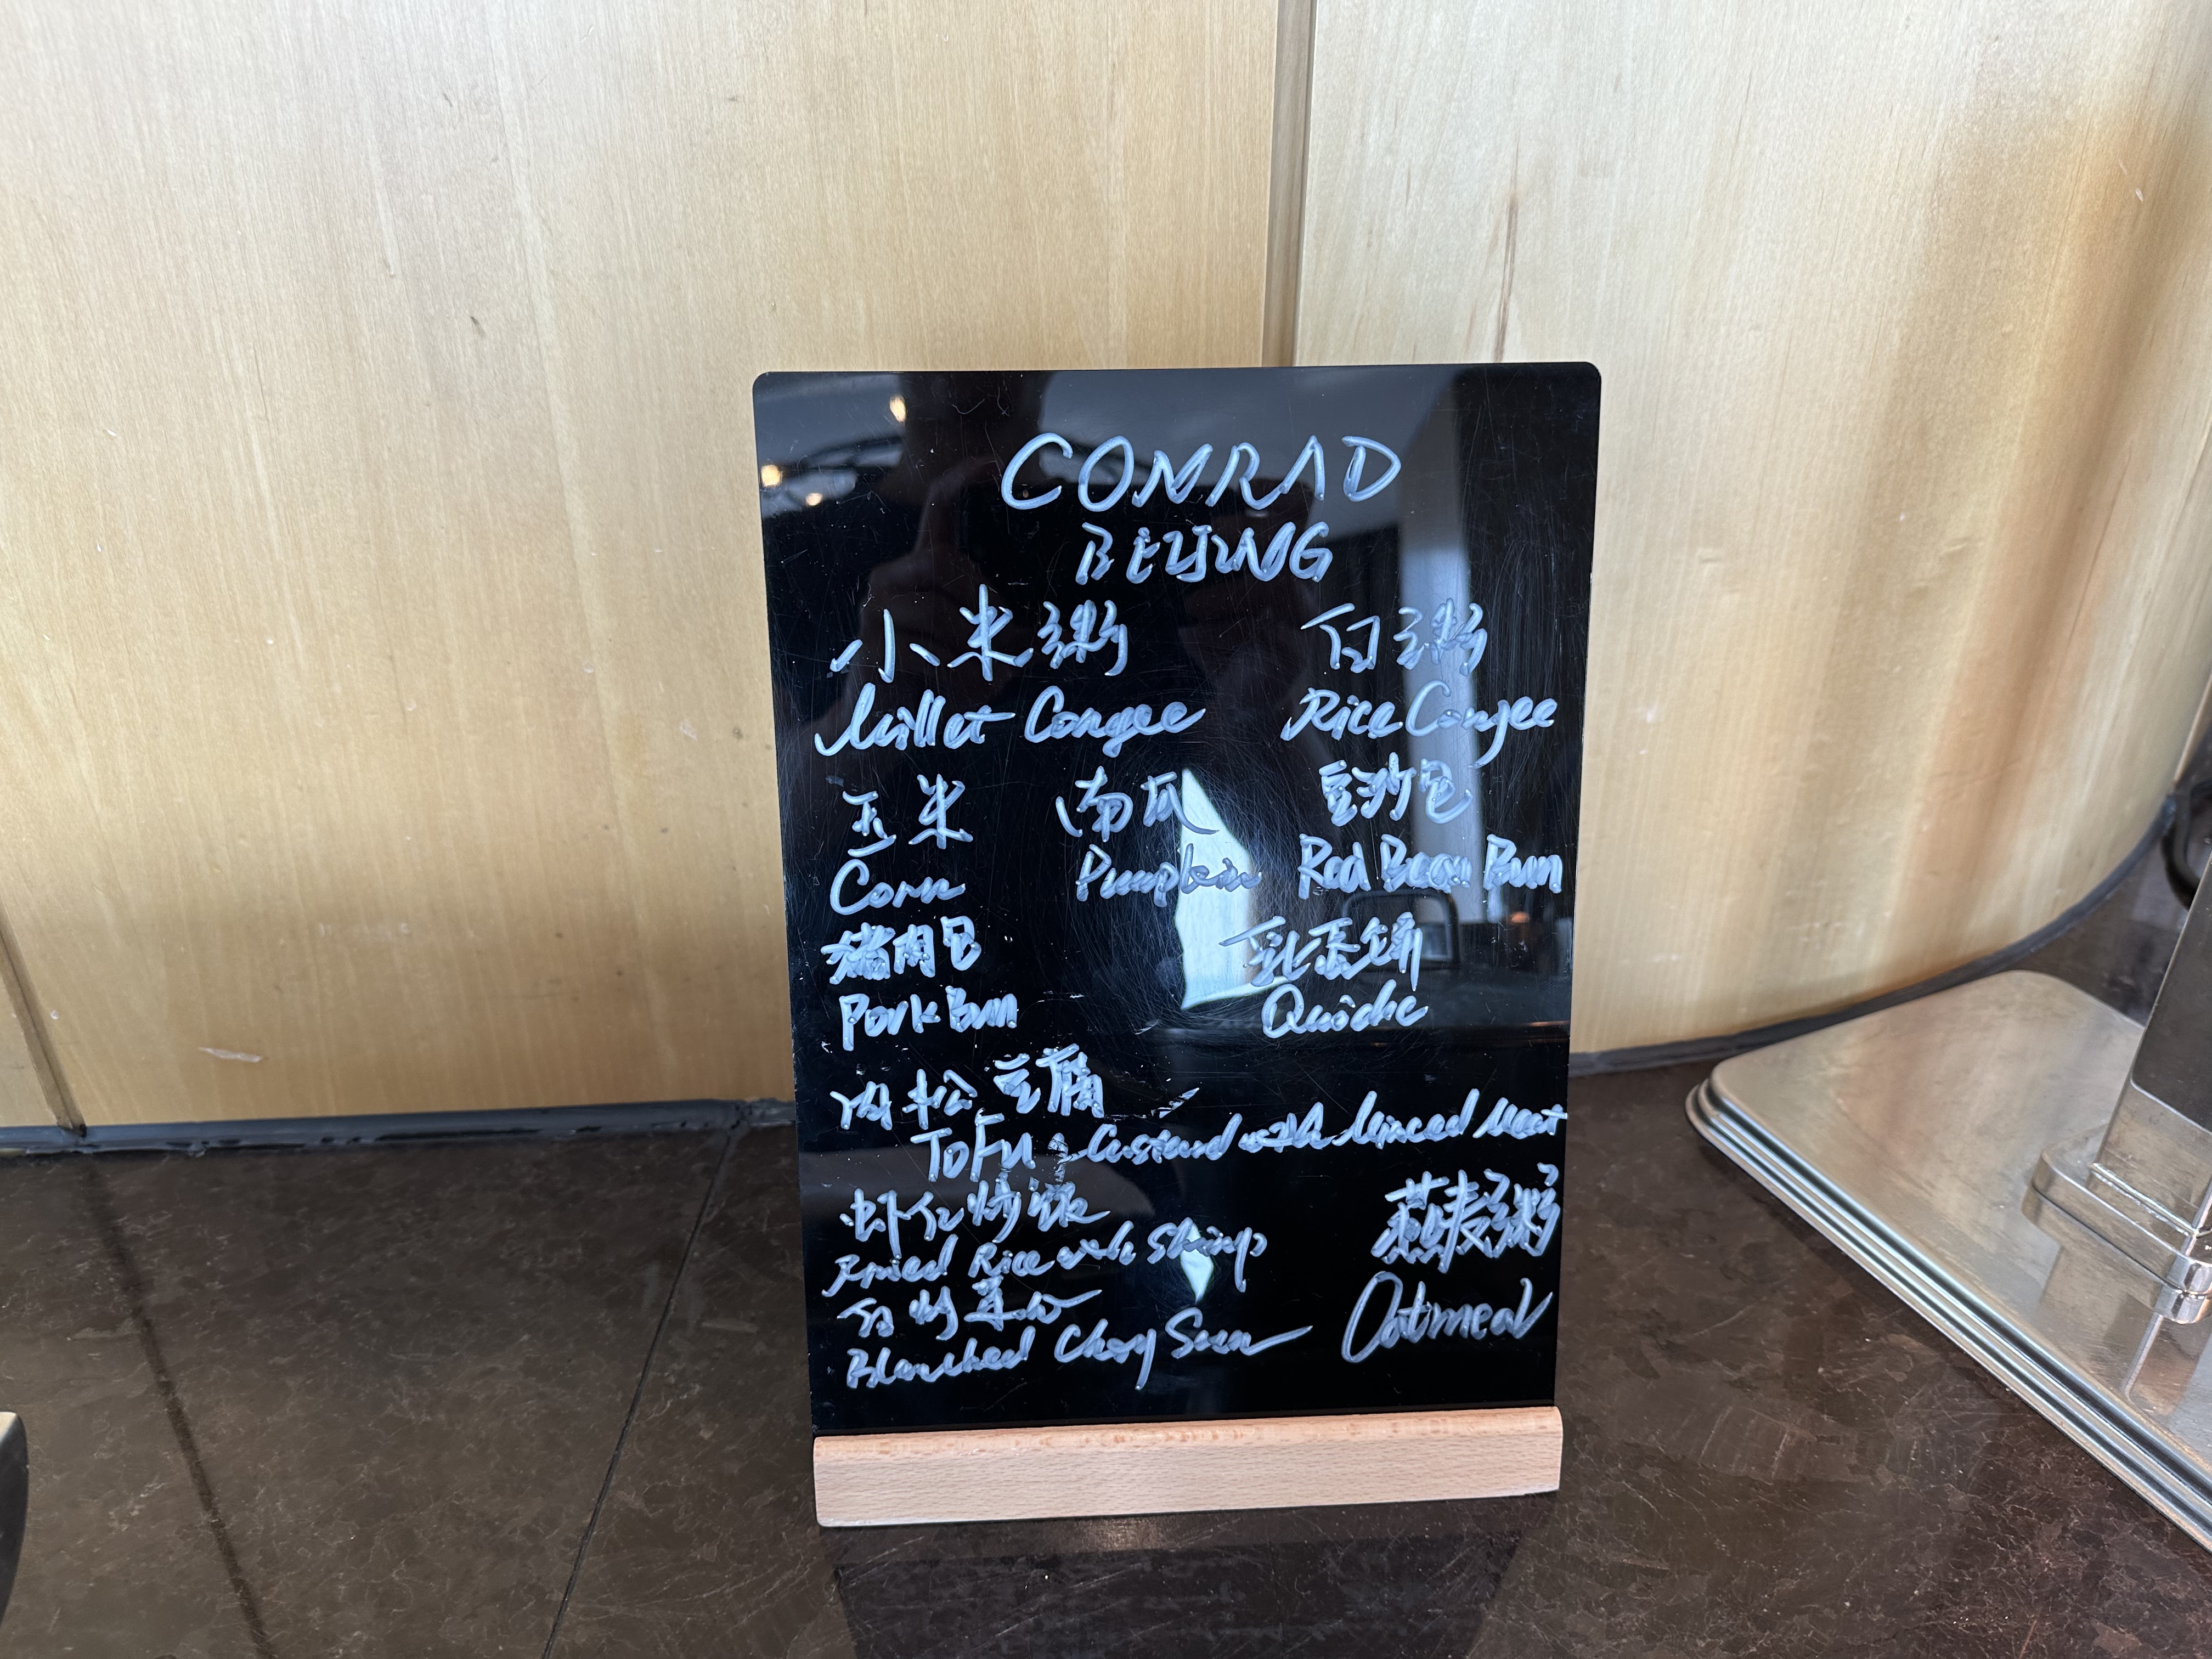 CONRAD
BEIJING
小米粥 白粥
Millet Congee Rice Congee
玉米 南瓜 豆沙包
Corn Pumpkin Red Bean Bun
猪肉包 乳蛋饼
Pork Bun Quiche
肉松豆腐
Tofu Custard with Minced Meat
虾仁炒饭 燕麦粥
Fried Rice with Shrimp
白灼菜心 Oatmeal
Blanched Choy Sum